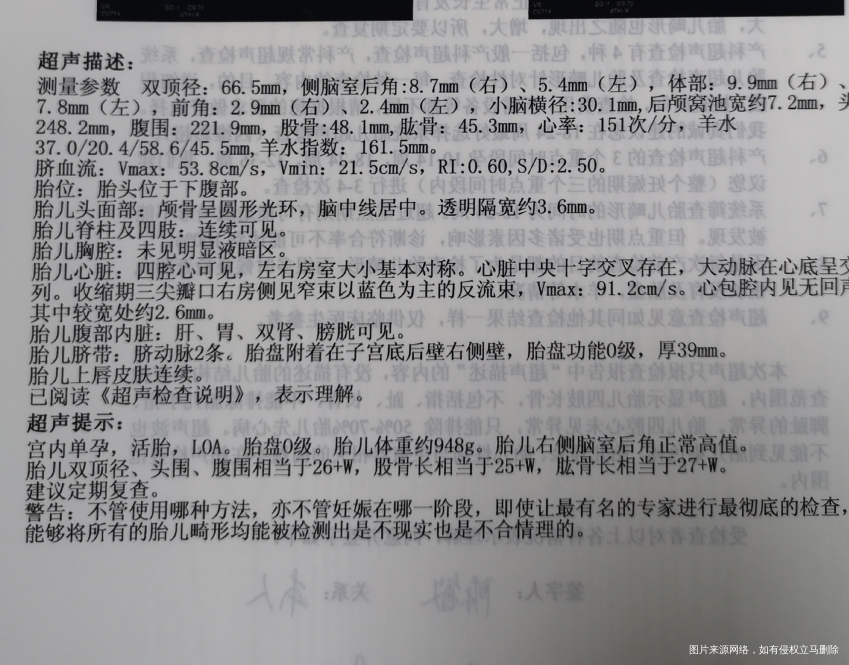 超声描述：
测量参数 双顶径：66.5mm，侧脑室后角:8.7mm（右）、5.4mm（左），体部：9.9mm（右）、
7.8mm（左），前角：2.9mm（右）、2.4mm（左），小脑横径:30.1mm,后颅窝池宽约7.2mm，头
248.2mm，腹围：221.9mm，股骨:48.1mm,肱骨：45.3mm，心率：151次/分，羊水
37.0/20.4/58.6/45.5mm,羊水指数：161.5mm。
脐血流：Vmax：53.8cm/s，Vmin：21.5cm/s，RI:0.60,S/D:2.50。
胎位：胎头位于下腹部。
胎儿头面部：颅骨呈圆形光环，脑中线居中。透明隔宽约3.6mm。
胎儿脊柱及四肢：连续可见。
胎儿胸腔：未见明显液暗区。
胎儿心脏：四腔心可见，左右房室大小基本对称。心脏中央十字交叉存在，大动脉在心底呈交
列。收缩期三尖瓣口右房侧见窄束以蓝色为主的反流束，Vmax：91.2cm/s。心包腔内见无回声
其中较宽处约2.6mm。
胎儿腹部内脏：肝、胃、双肾、膀胱可见。
胎儿脐带：脐动脉2条。胎盘附着在子宫底后壁右侧壁，胎盘功能0级，厚39mm。
胎儿上唇皮肤连续。
已阅读《超声检查说明》，表示理解。
超声提示：
宫内单孕，活胎，LOA。胎盘0级。胎儿体重约948g。胎儿右侧脑室后角正常高值。
胎儿双顶径、头围、腹围相当于26+W，股骨长相当于25+W，肱骨长相当于27+W。
建议定期复查。
警告：不管使用哪种方法，亦不管妊娠在哪一阶段，即使让最有名的专家进行最彻底的检查，
能够将所有的胎儿畸形均能被检测出是不现实也是不合情理的。
图片来源网络，如有侵权立马删除